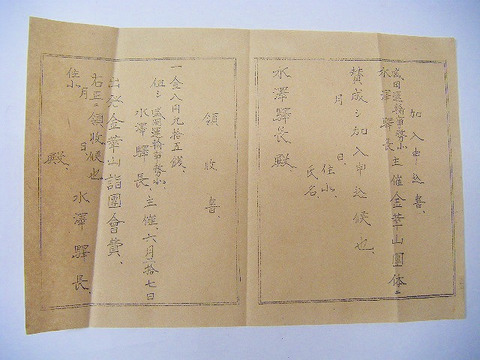 加入申込書、
盛岡運輸事務所
水澤驛長 主催金華山團体ニ
賛成シ加入申込候也、
月 日、
住所
氏名
水澤驛長殿
領收書、
一金八円九拾五銭、
但シ盛岡運輸事務所
水澤驛長、主催、六月二拾七日
出発金華山詣團會費、
右正ニ領收候也
月 日 水澤驛長
住所
殿、